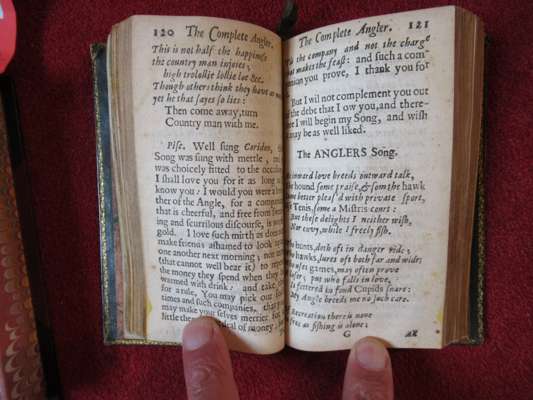 120 The Complete Angler.
This is not half the happiness
the country man injoies;
high trolollie lollie loe &c.
Though others think they have as much
yet he that sayes so lies:
Then come away, turn
Country man with me.
Pisc. Well sung Coridon, this
Song was sung with mettle, and
was choicely fitted to the occasion
I shall love you for it as long as
know you: I would you were a bro
ther of the Angle, for a companion
that is cheerful, and free from swear
ing and scurrilous discourse, is worth
gold. I love such mirth as does not
make friends ashamed to look upon
one another next morning; nor men
(that cannot well bear it) to repent
the money they spend when they be
warmed with drink: and take this
for a rule, You may pick out such
times and such companies, that you
may make your selves merrier for
little then a great deal of money; for
The Complete Angler. 121
'Tis the company and not the charge
that makes the feast: and such a com
panion you prove, I thank you for
But I wil not complement you out
of the debt that I ow you, and there-
fore I will begin my Song, and wish
it may be as well liked.
The ANGLERS Song.
As inward love breeds outward talk,
The hound some praise, & som the hawk
Some better pleas'd with private sport,
Use Tenis, some a Mistris court:
But these delights I neither wish,
Nor envy, while I freely fish.
Who hunts, doth oft in danger ride;
Who hawks, lures oft both far and wide;
Who uses games, may often prove
A loser; but who falls in love,
Is fettered in fond Cupids snare:
My Angle breeds me no such care.
Of Recreation there is none
So free as fishing is alone;
G
All